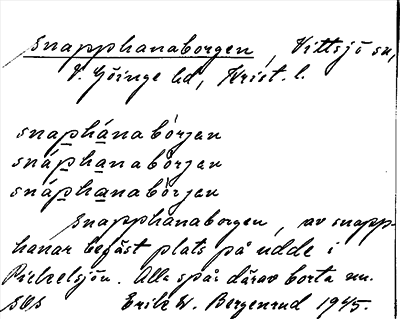 Snapphanaborgen, Vittsjö sn,
V. Göinge hd, Krist. l.
snaphánabòrjen
snáphanabòrjen
snáphanabòrjen
Snapphanaborgen, av snapp-
hanar begåst plats på udde i
Pickelsjön. Alla spår därav borta nu.
SOS Erik W. Bergenrud 1945.